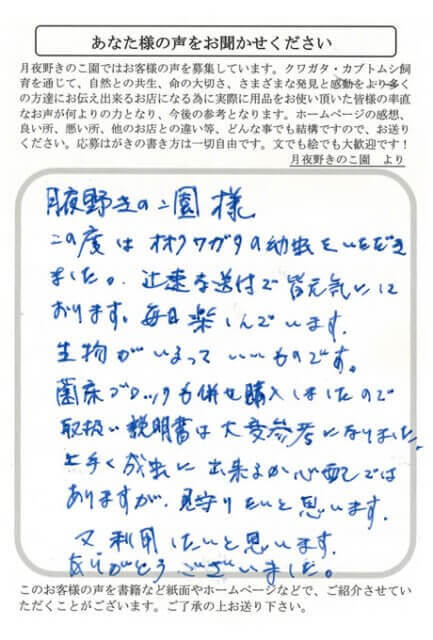 あなた様の声をお聞かせください
月夜野きのこ園ではお客様の声を募集しています。クワガタ・カブトムシ飼
育を通じて、自然との共生、命の大切さ、さまざまな発見と感動をより多く
の方達にお伝え出来るお店になる為に実際に用品をお使い頂いた皆様の率直
なお声が何よりの力となり、今後の参考となります。ホームページの感想、
良い所、悪い所、他のお店との違い等、どんな事でも結構ですので、お送り
ください。応募はがきの書き方は一切自由です。文でも絵でも大歓迎です！
月夜野きのこ園　より
月夜野きのこ園 様
この度はオオクワガタの幼虫をいただき
ました。迅速な送付で皆元気にして
おります。毎日楽しんでいます。
生物がいるっていいものです。
菌床ブロックも併せ購入しましたので
取扱い説明書は大変参考になりました。
上手く成虫に出来るか心配では
ありますが、見守りたいと思います。
又利用したいと思います。
ありがとうございました。
このお客様の声を書籍など紙面やホームページなどで、ご紹介させてい
ただくことがございます。ご了承の上お送り下さい。